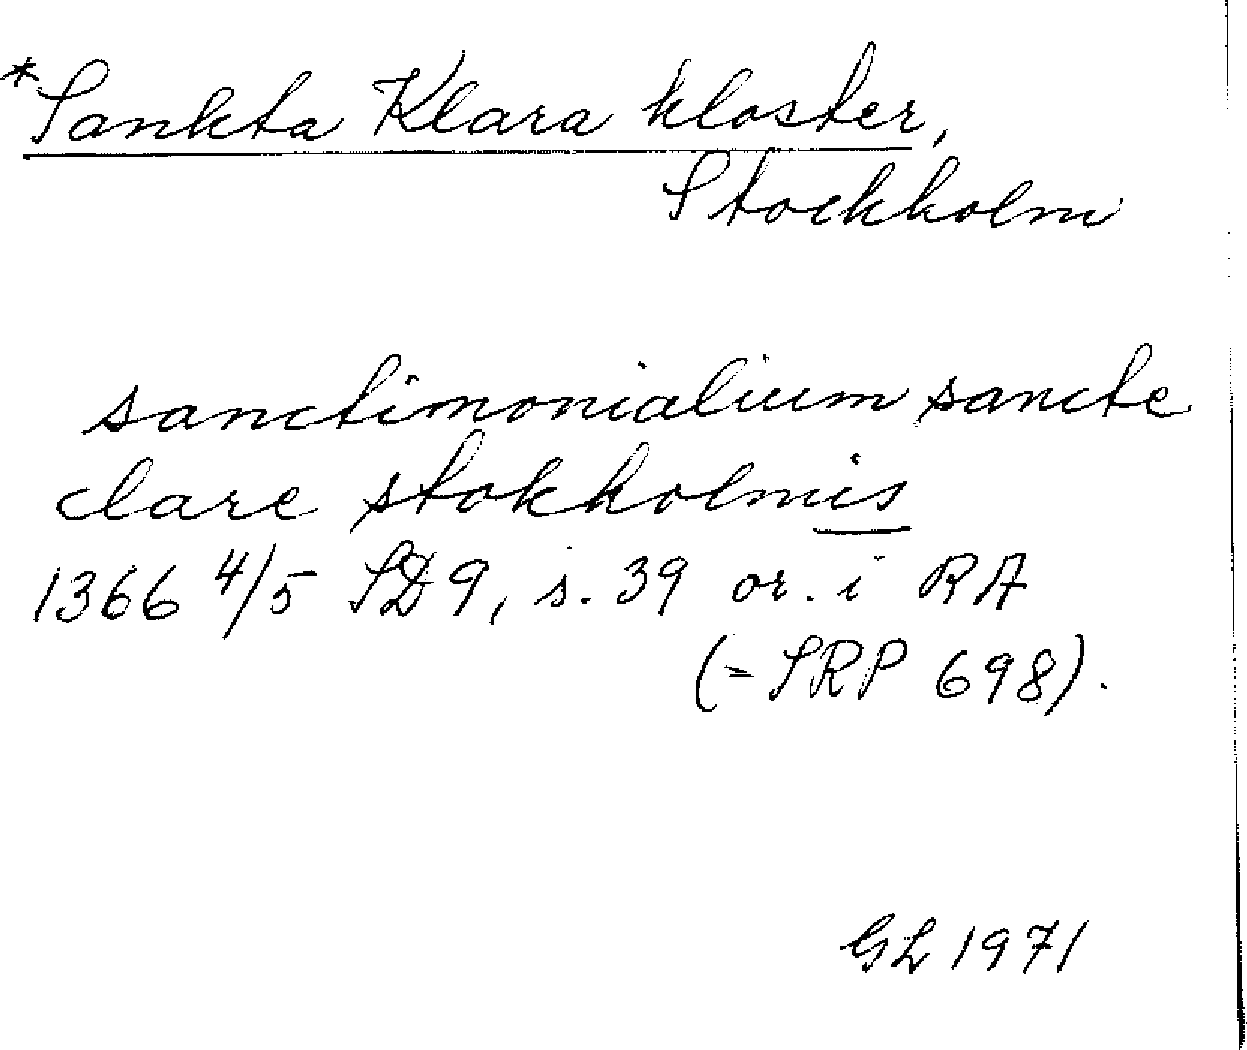 *Sankta Klara kloster,
Stockholm
sanctimonialium sancte
clare stokholmis
1366 4/5 SD 9, s. 39 or. i RA
(= SRP 698).
GL 1971